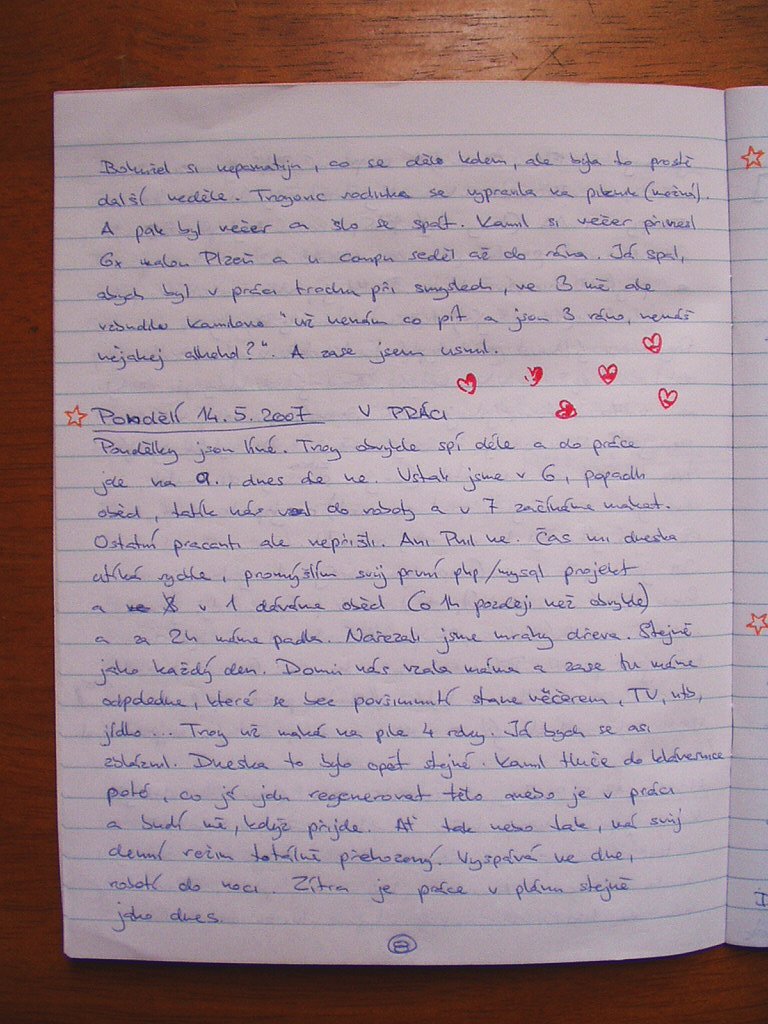 Bohužel si nepamatuju, co se dělo kolem, ale byla to prostě
další neděle. Troyovic rodinka se vypravila na piknik (možná).
A pak byl večer a šlo se spát. Kamil si večer přinesl
6x malou Plzeň a u compu seděl až do rána. Já spal,
abych byl v práci trochu při smyslech, ve 3 mě ale
vzbudilo Kamilovo "už nemám co pít a jsou 3 ráno, nemáš
nějakej alkohol?". A zase jsem usnul.
Pondělí 14.5.2007 V PRÁCI
Pondělky jsou líné. Troy obvykle spí déle a do práce
jde na 9., dnes ale ne. Vstali jsme v 6, popadli
oběd, taťík nás vzal do roboty a v 7 začínáme makat.
Ostatní pracanti ale nepřišli. Ani Phil ne. Čas mi dneska
utíká rychle, promýšlím svůj první php/mysql projekt
a v 1 dáváme oběd (o 1h později než obvykle)
a za 2h máme padla. Nařezali jsme mraky dřeva. Stejně
jako každý den. Domů nás vzala máma a zase tu máme
odpoledne, které se bez povšimnutí stane večerem, TV, ntb,
jídlo... Troy už maká na pile 4 roky. Já bych se asi
zbláznil. Dneska to bylo opět stejné. Kamil tluče do klávesnice
poté, co já jdu regenerovat tělo anebo je v práci
a budí mě, když přijde. Ať tak nebo tak, má svůj
denní režim totálně přehozený. Vyspává ve dne,
robotí do noci. Zítra je práce v plánu stejně
jako dnes.
8